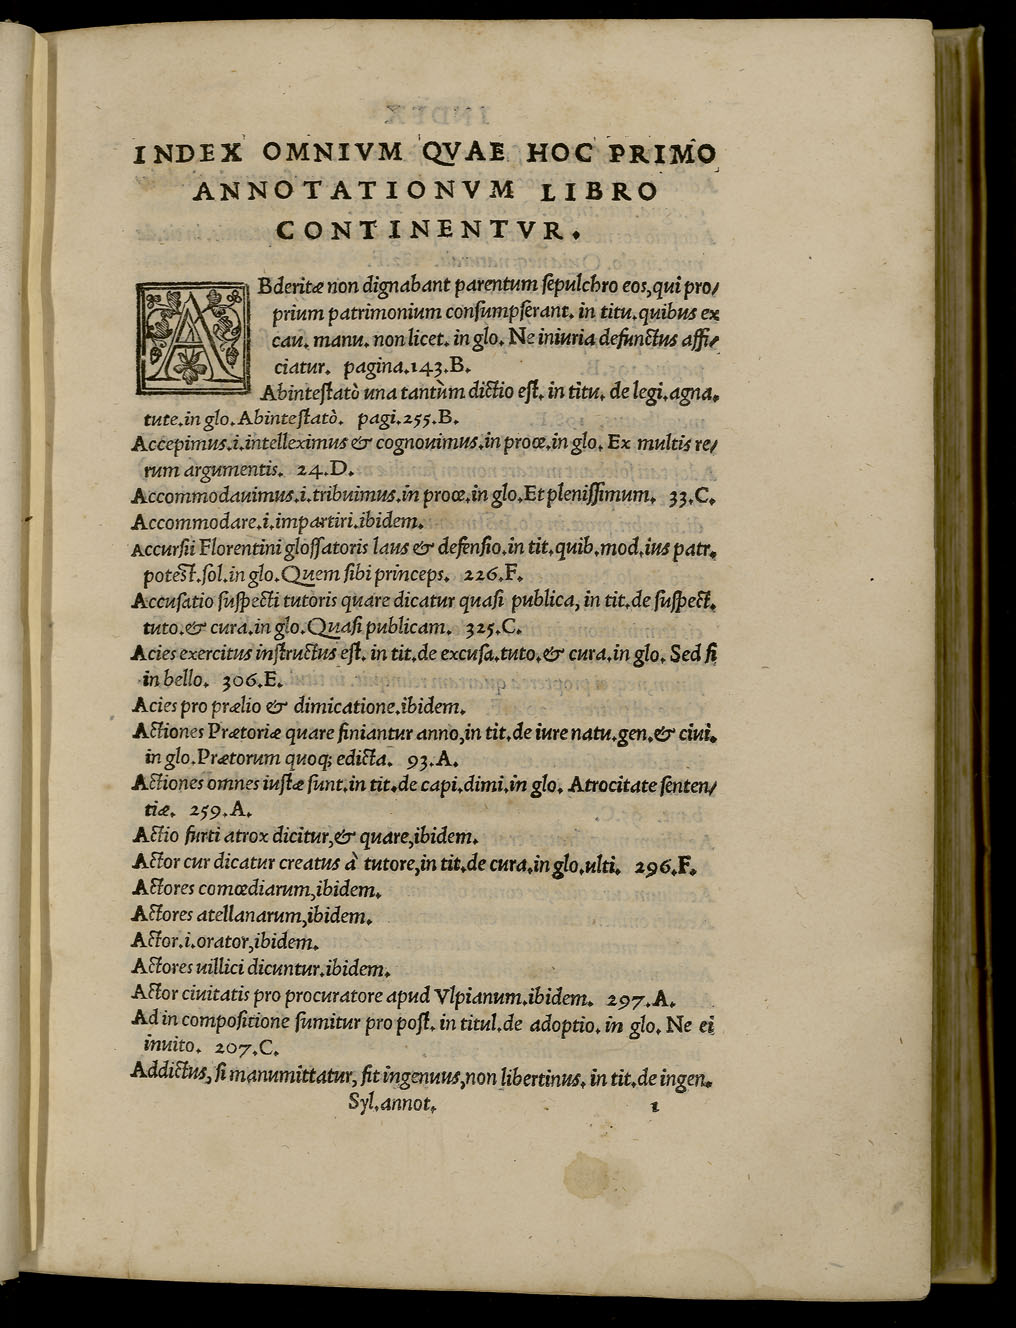 INDEX OMNIVM QVAE HOC PRIMO
ANNOTATIONVM LIBRO
CONTINENTVR.
ABderitæ non dignabant parentum ſepulchro eos, qui pro/
prium patrimonium conſumpſerant. in titu. quibus ex
cau. manu. non licet. in glo. Ne iniuria defunctus affi/
ciatur. pagina. 143. B.
Abinteſtatò una tantùm dictio eſt. in titu. de legi. agna.
tute. in glo. Abinteſtatò. pagi. 255. B.
Accepimus. i. intelleximus & cognouimus. in proœ. in glo. Ex multis re/
rum argumentis. 24. D.
Accommodauimus. i. tribuimus. in proœ. in glo. Et pleniſſimum. 33. C.
Accommodare. i. impartiri. ibidem.
Accurſii Florentini gloſſatoris laus & defenſio. in tit. quib. mod. ius patr.
poteſt. ſol. in glo. Quem ſibi princeps. 226. F.
Accuſatio ſuſpecti tutoris quare dicatur quaſi publica, in tit. de ſuſpect.
tuto. & cura. in glo. Quaſi publicam. 325. C.
Acies exercitus inſtructus eſt. in tit. de excuſa. tuto. & cura. in glo. Sed ſi
in bello. 306. E.
Acies pro prælio & dimicatione. ibidem.
Actiones Prætoriæ quare finiantur anno, in tit. de iure natu. gen. & ciui.
in glo. Prætorum quoq; edicta. 93. A.
Actiones omnes iuſtæ ſunt. in tit. de capi. dimi. in glo. Atrocitate ſenten/
tiæ. 259. A.
Actio furti atrox dicitur, & quare, ibidem.
Actor cur dicatur creatus à tutore, in tit. de cura. in glo. ulti. 296. F.
Actores comœdiarum, ibidem.
Actores atellanarum, ibidem.
Actor. i. orator, ibidem.
Actores uillici dicuntur. ibidem.
Actor ciuitatis pro procuratore apud Vlpianum. ibidem. 297. A.
Ad in compoſitione ſumitur pro poſt. in titul. de adoptio. in glo. Ne ei
inuito. 207. C.
Addictus, ſi manumittatur, fit ingenuus, non libertinus. in tit. de ingen.
Syl. annot. 1